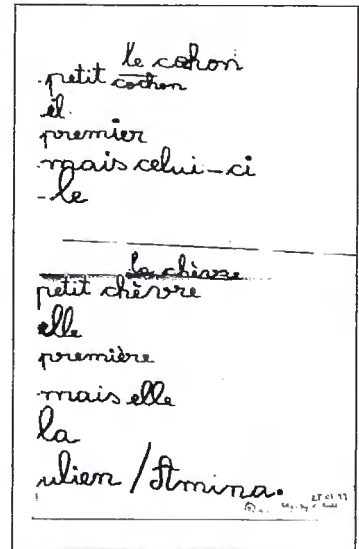 le cohon
petit cochon
il
premier
mais celui-ci
-le
la chèvre
petit chèvre
elle
première
mais elle
la
ulien / Amina.